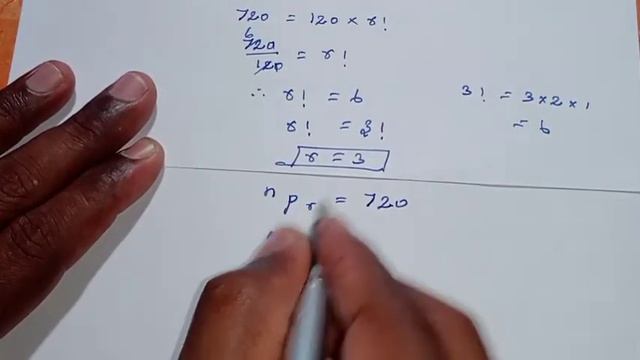 720 = 120 × r!
6
720/120 = r!
∴ r! = 6
r! = 3!
r = 3
3! = 3×2×1
= 6
ⁿPᵣ = 720